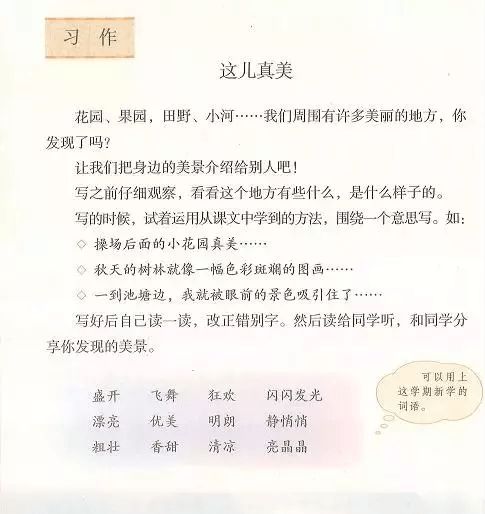 习 作
这儿真美
花园、果园，田野、小河……我们周围有许多美丽的地方，你
发现了吗？
让我们把身边的美景介绍给别人吧！
写之前仔细观察，看看这个地方有些什么，是什么样子的。
写的时候，试着运用从课文中学到的方法，围绕一个意思写。如：
◇ 操场后面的小花园真美……
◇ 秋天的树林就像一幅色彩斑斓的图画……
◇ 一到池塘边，我就被眼前的景色吸引住了……
写好后自己读一读，改正错别字。然后读给同学听，和同学分
享你发现的美景。
可以用上
这学期新学的
词语。
盛开 飞舞 狂欢 闪闪发光
漂亮 优美 明朗 静悄悄
粗壮 香甜 清凉 亮晶晶